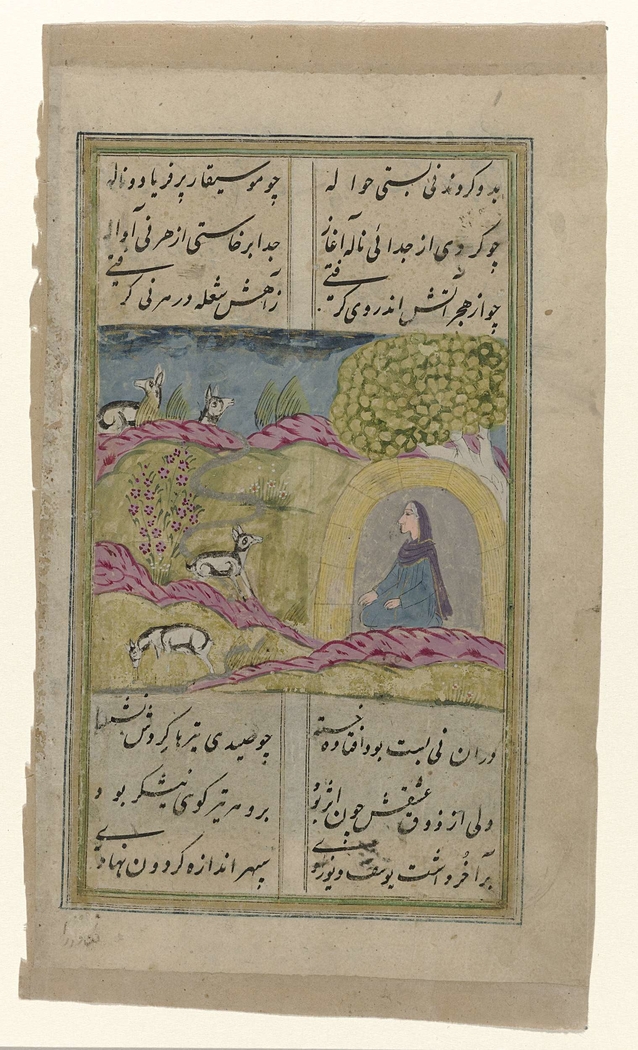 بدو کردند نی بستی حواله چو موسیقار پر فریاد و ناله
چو کردی از جدائی ناله آغاز جدا برخاستی از هر نی آواز
چو از هجر آتش اندر وی گرفتی ز آهش شعله در هر نی گرفتی
در ان نی بست بود افتاده خسته چو صیدی تیرها گردش نشسته
ولی از ذوق عشقش چون اثر بود برو هر تیر گوی نیشکر بود
بر آخُر داشت یوسف دیوزادی سپهر اندازه گردون نهادی